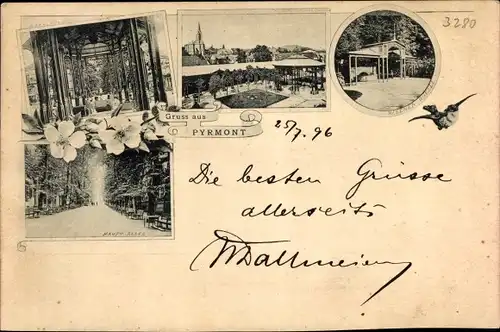 3280
Gruss aus
PYRMONT
25/7. 96
HAUPT ALLEE
Die besten Grüsse
allerseits